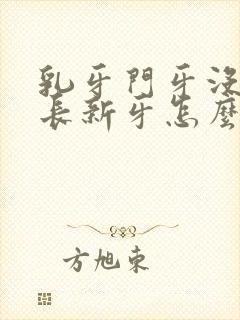 乳牙門牙沒
長新牙怎麼
方旭東